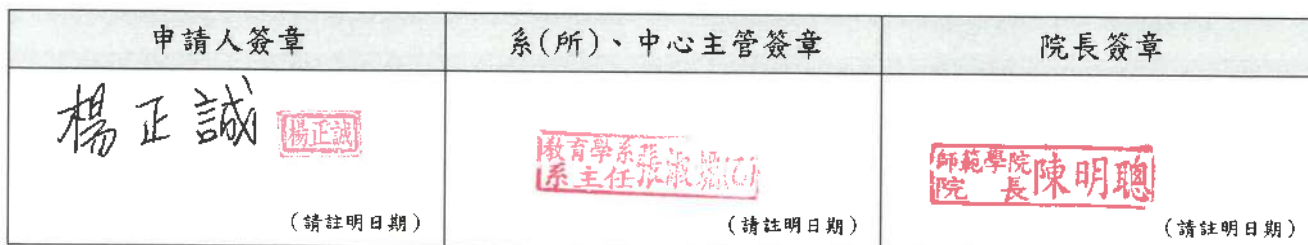 申請人簽章
系(所)、中心主管簽章
院長簽章
楊正誠
楊正誠
(請註明日期)
教育學系
系主任張淑媚
(請註明日期)
師範學院
院長陳明聰
(請註明日期)